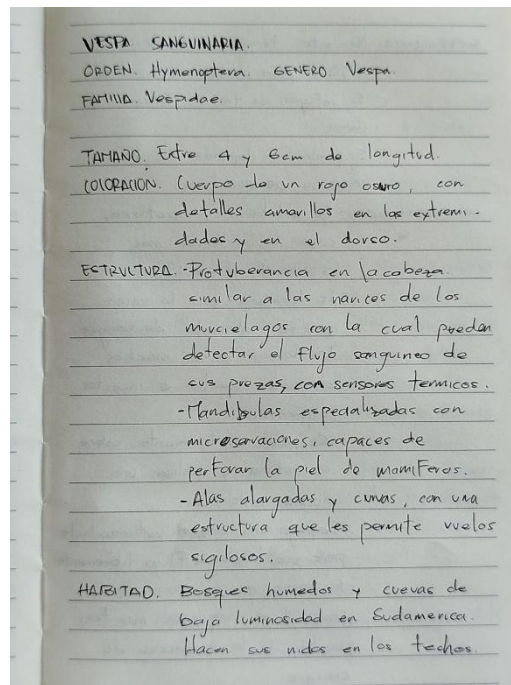 VESPA SANGUINARIA.
ORDEN. Hymenoptera. GENERO Vespa.
FAMILIA. Vespidae.
TAMAÑO. Entre 4 y 6cm de longitud.
COLORACION. Cuerpo de un rojo oscuro, con
detalles amarillos en las extremi-
dades y en el dorso.
ESTRUCTURA. - Protuberancia en la cabeza
similar a las narices de los
murcielagos con la cual pueden
detectar el flujo sanguineo de
sus prezas, con sensores termicos.
- Mandibulas especializadas con
microserraciones, capaces de
perforar la piel de mamiferos.
- Alas alargadas y curvas, con una
estructura que les permite vuelos
sigilosos.
HABITAD. Bosques humedos y cuevas de
baja luminosidad en Sudamerica.
Hacen sus nidos en los techos.